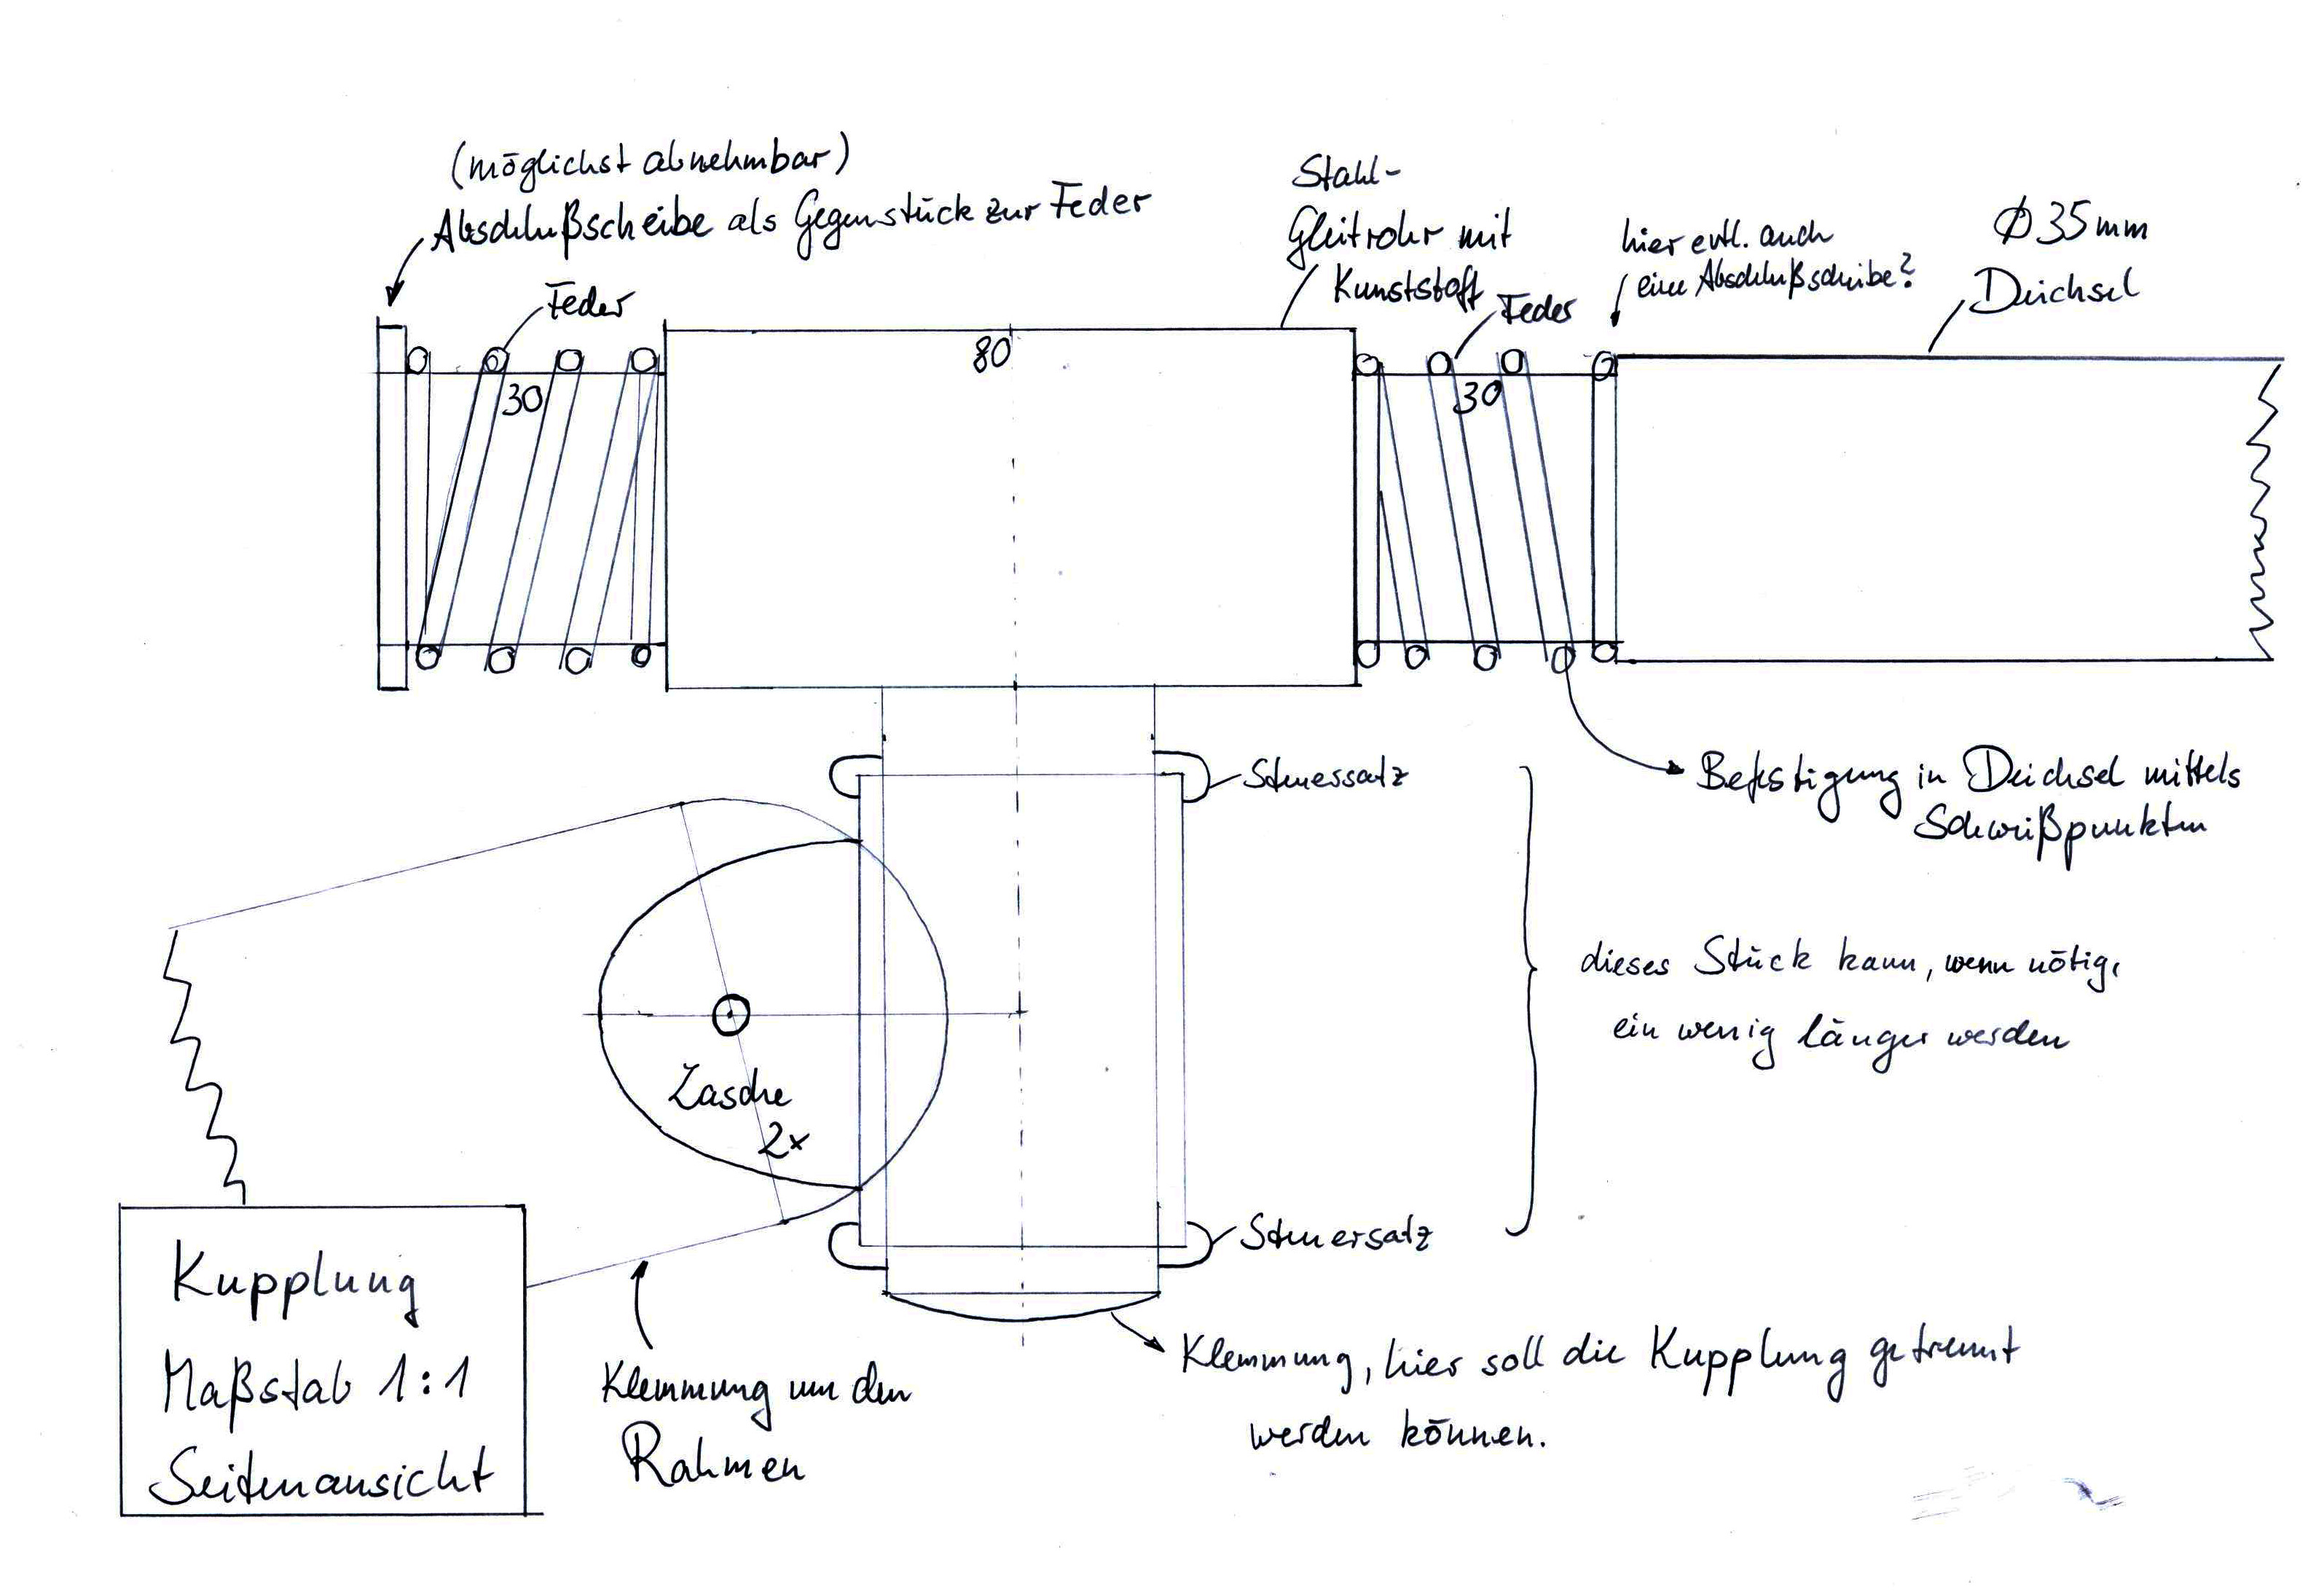 (möglichst abnehmbar)
Abschlußscheibe als Gegenstück zur Feder
Feder
30
80
Stahl-
Gleitrohr mit
Kunststoff
Feder
30
hier evtl. auch
eine Abschlußscheibe?
Ø 35mm
Deichsel
Steuersatz
Befestigung in Deichsel mittels
Schweißpunkten
dieses Stück kann, wenn nötig,
ein wenig länger werden
Lasche
2x
Steuersatz
Kupplung
Maßstab 1:1
Seitenansicht
Klemmung um den
Rahmen
Klemmung, hier soll die Kupplung getrennt
werden können.